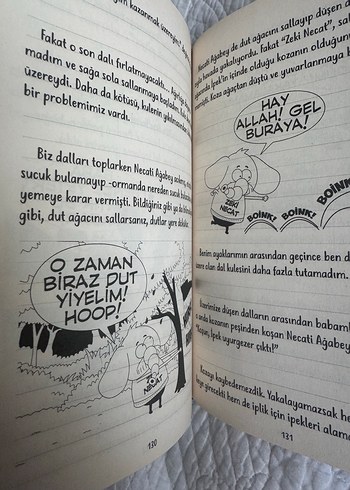 kazanmak üzereyim."
Fakat o son dalı fırlatmayacaktı...
madım ve sağa sola sallanmaya başladım.
üzereydi. Daha da kötüsü, kulenin yıkılmasından
bir problemimiz vardı.
Biz dalları toplarken Necati Ağabey
sucuk bulamayıp -ormanda nereden sucuk
yemeye karar vermişti. Bildiğiniz gibi ya da
gibi, dut ağacını sallarsanız, dutlar yere
O ZAMAN
BİRAZ DUT
YİYELİM!
HOOP!
NECAT
130
Necati Ağabey de dut ağacını sallayıp düşen
havada yakalıyordu. Fakat "Zeki Necat",
İpek'in içinde olduğu kozanın olduğu
Koza ağaçtan düştü ve yuvarlanmaya
HAY
ALLAH! GEL
BURAYA!
ZEKİ
NECAT
BOİNK!
BOİNK!
BOİNK!
Benim ayaklarımın arasından geçince ben de
olan dal kulesini daha fazla tutamadım.
Üzerimize düşen dalların arasından babam
anda kozanın peşinden koşan Necati Ağabey
"Koşun, İpek uyurgezer çıktı!"
Kozayı kaybedemezdik. Yakalayamazsak
girecekti hem de iplik için ipekleri
131